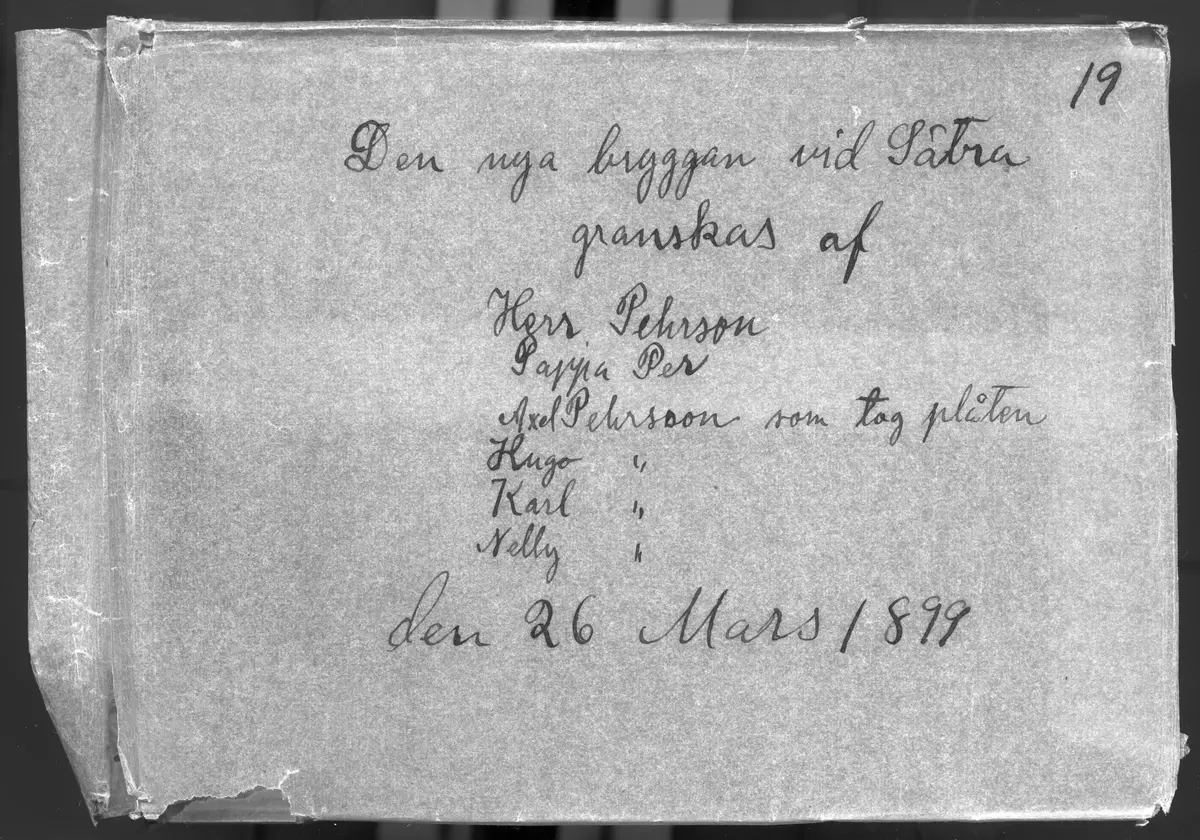 19
Den nya bryggan vid Sätra
granskas af
Herr Pehrson
Pappa Per
Axel Pehrsson som tog plåten
Hugo "
Karl "
Nelly "
den 26 Mars 1899